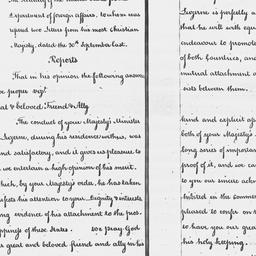 Department of foreign affairs, to whom was
referred two Letters from his most christian
Majesty, dated the 30th September last.
Reports
That in his opinion the following answer
be proper viz:
Great & beloved Friend & Ally
The conduct of your Majesty's Minister
Luzerne, during his residence with us, was
and satisfactory, and it gives us pleasure to
we entertain a high opinion of his merit.
which, by your Majesty's order, he has taken
his attention to your Dignity & interests
evidence of his attachment to the
of these States. We pray God
great and beloved friend and ally in his
Luzerne is perfectly a
that he will with equ
endeavour to promote
of both Countries, and
mutual attachment
sists between them.
kind and explicit ap
both of your Majesty's
long series of important
proof of it, and we can
to you our sincere ackn
hibited on the comme
pleased to confer on t
to have you our great
his holy keeping.